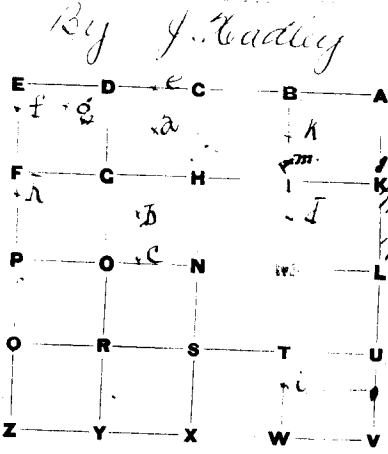 By J. Hadley
E D e C B A
f g
a k
m
F G H I K
h
b I
P O c N M L
O R S T U
i
Z Y X W V